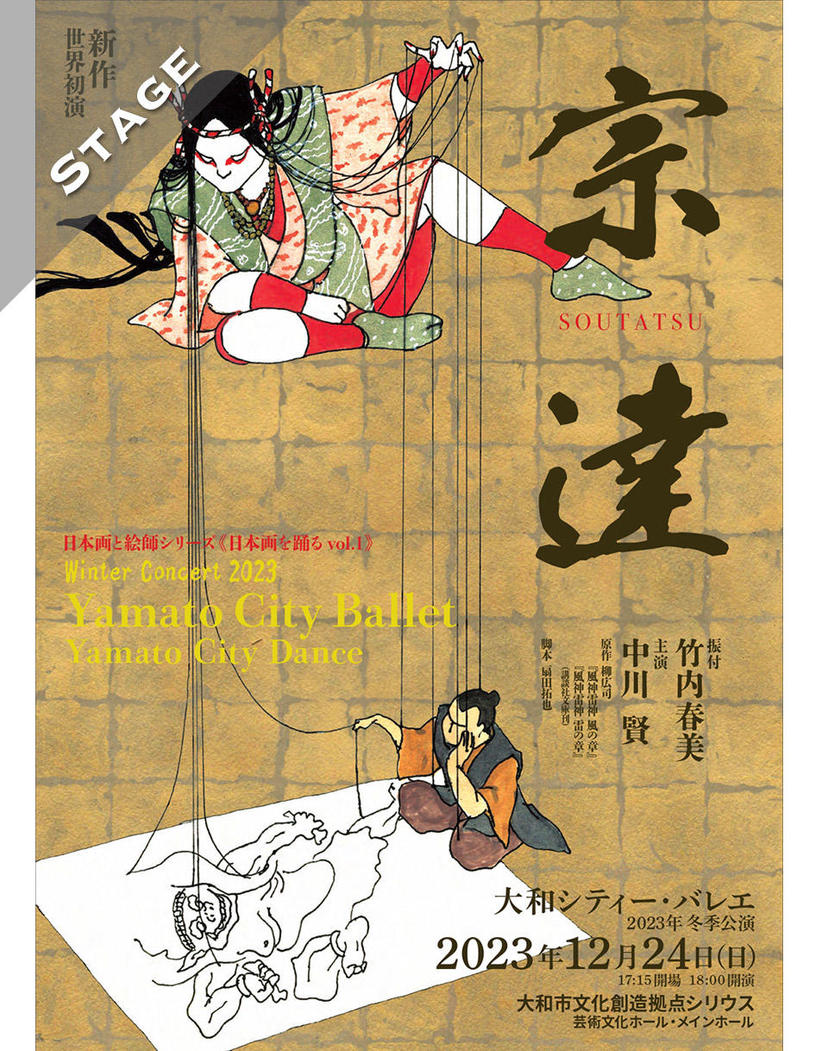 新作
世界初演
STAGE
宗達
SOUTATSU
日本画と絵師シリーズ《日本画を踊る vol.1》
Winter Concert 2023
Yamato City Ballet
Yamato City Dance
振付
竹内春美
主演
中川 賢
原作 柳広司
『風神雷神 風の章』
『風神雷神 雷の章』
(講談社文庫刊)
脚本 扇田拓也
大和シティー・バレエ
2023年 冬季公演
2023年12月24日(日)
17:15開場 18:00開演
大和市文化創造拠点シリウス
芸術文化ホール・メインホール